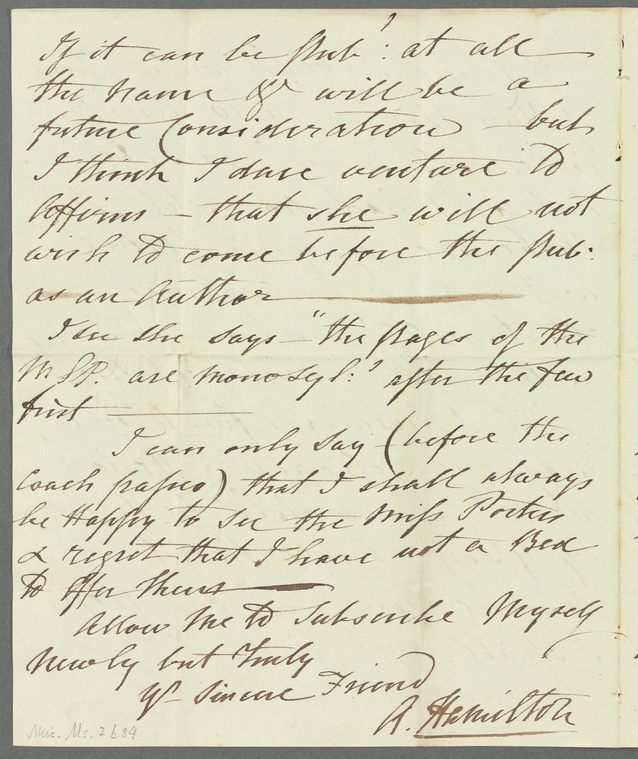 If it can be Pub:d at all
the name &c will be a
future Consideration — but
I think I dare venture to
Affirm — that she will not
wish to come before the Pub:
as an Author —
I see she says — "the pages of the
MSP. are monosyl:" after the few
first —
I can only say (before the
Coach passes) that I shall always
be Happy to see the Miss Porters
& regret that I have not a Bed
to offer them —
Allow me to Subscribe Myself
Newly but Truly
Yr Sincere Friend
A. Hamilton
Misc. Ms. 2684